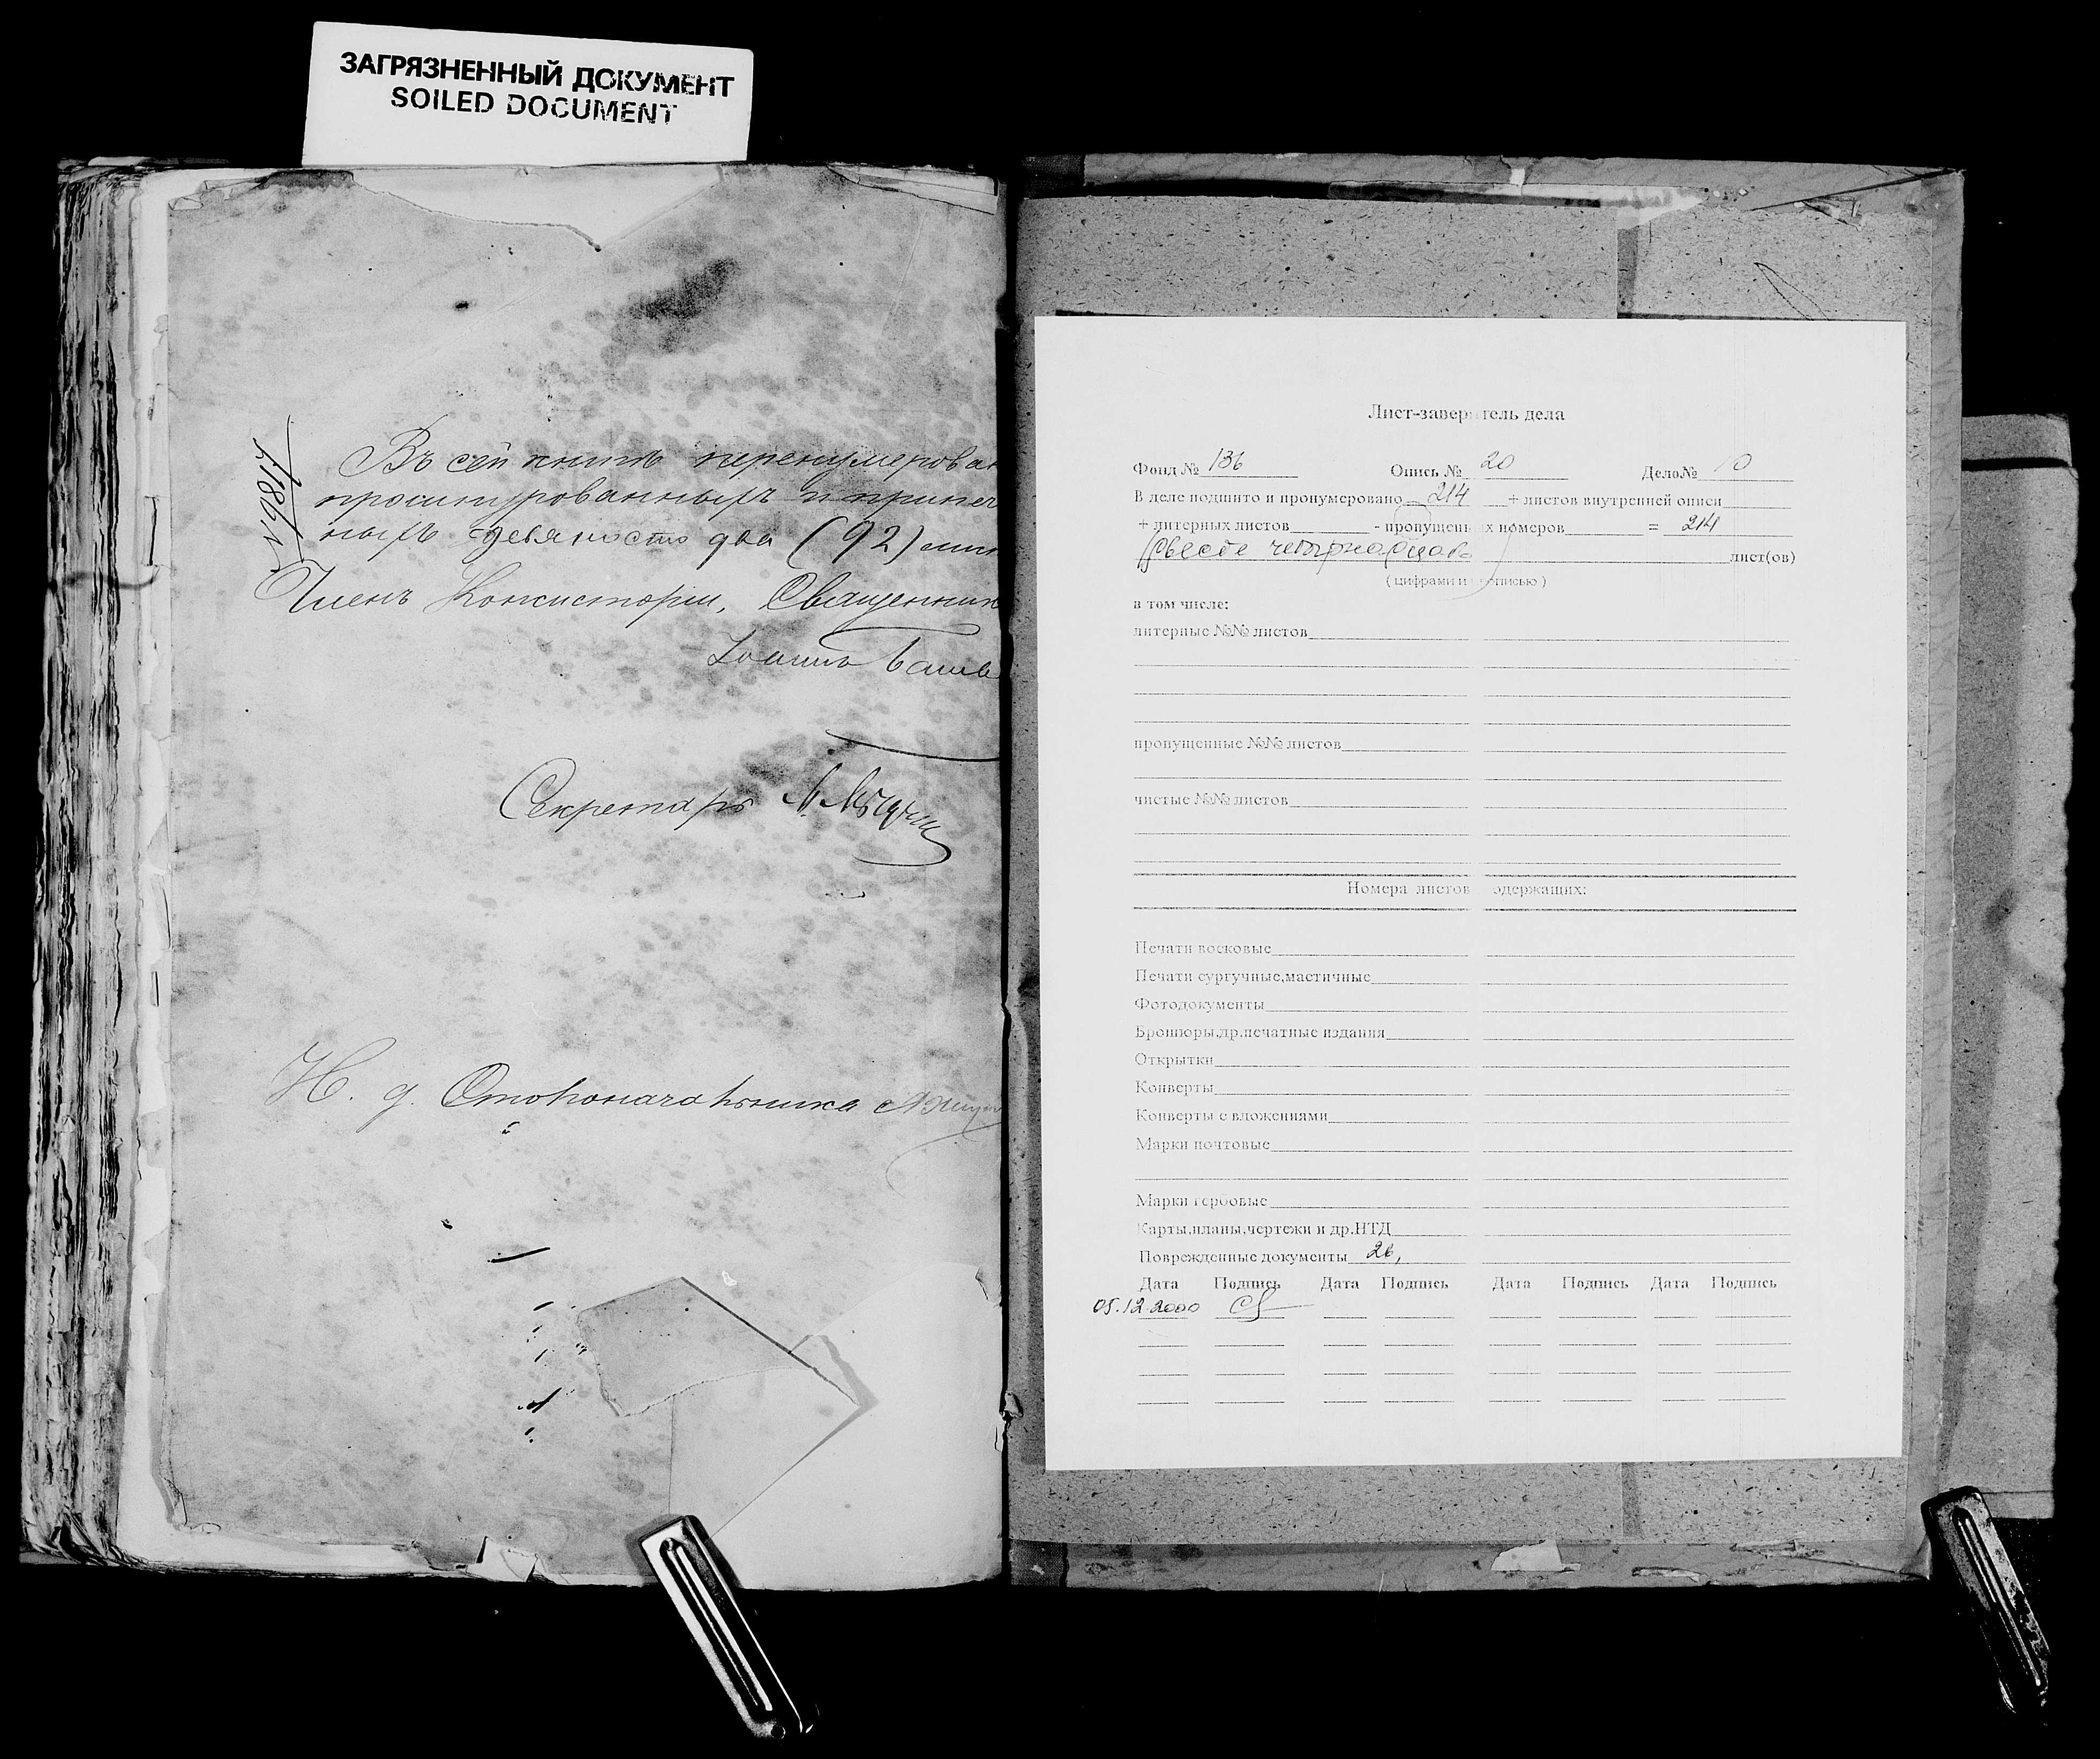 ЗАГРЯЗНЕННЫЙ ДОКУМЕНТ
SOILED DOCUMENT
№9817
Въ сей книгѣ перенумерован
прошнурованныхъ и припеч
ныхъ девяносто два (92) лис
Членъ Консисторіи, Священник
Іоаннъ
Секретарь
Н. д. Столоначальника
Лист-заверитель дела
Фонд № 136 Опись № 20 Дело№ 10
В деле подшито и пронумеровано 214 + листов внутренней описи
+ литерных листов - пропущенных номеров = 214
Двести четырнадцать лист(ов)
( цифрами и прописью )
в том числе:
литерные №№ листов
пропущенные №№ листов
чистые №№ листов
Номера листов содержащих:
Печати восковые
Печати сургучные,мастичные
Фотодокументы
Брошюры,др.печатные издания
Открытки
Конверты
Конверты с вложениями
Марки почтовые
Марки гербовые
Карты,планы,чертежи и др.НТД
Поврежденные документы
Дата Подпись Дата Подпись Дата Подпись Дата Подпись
05.12.2000